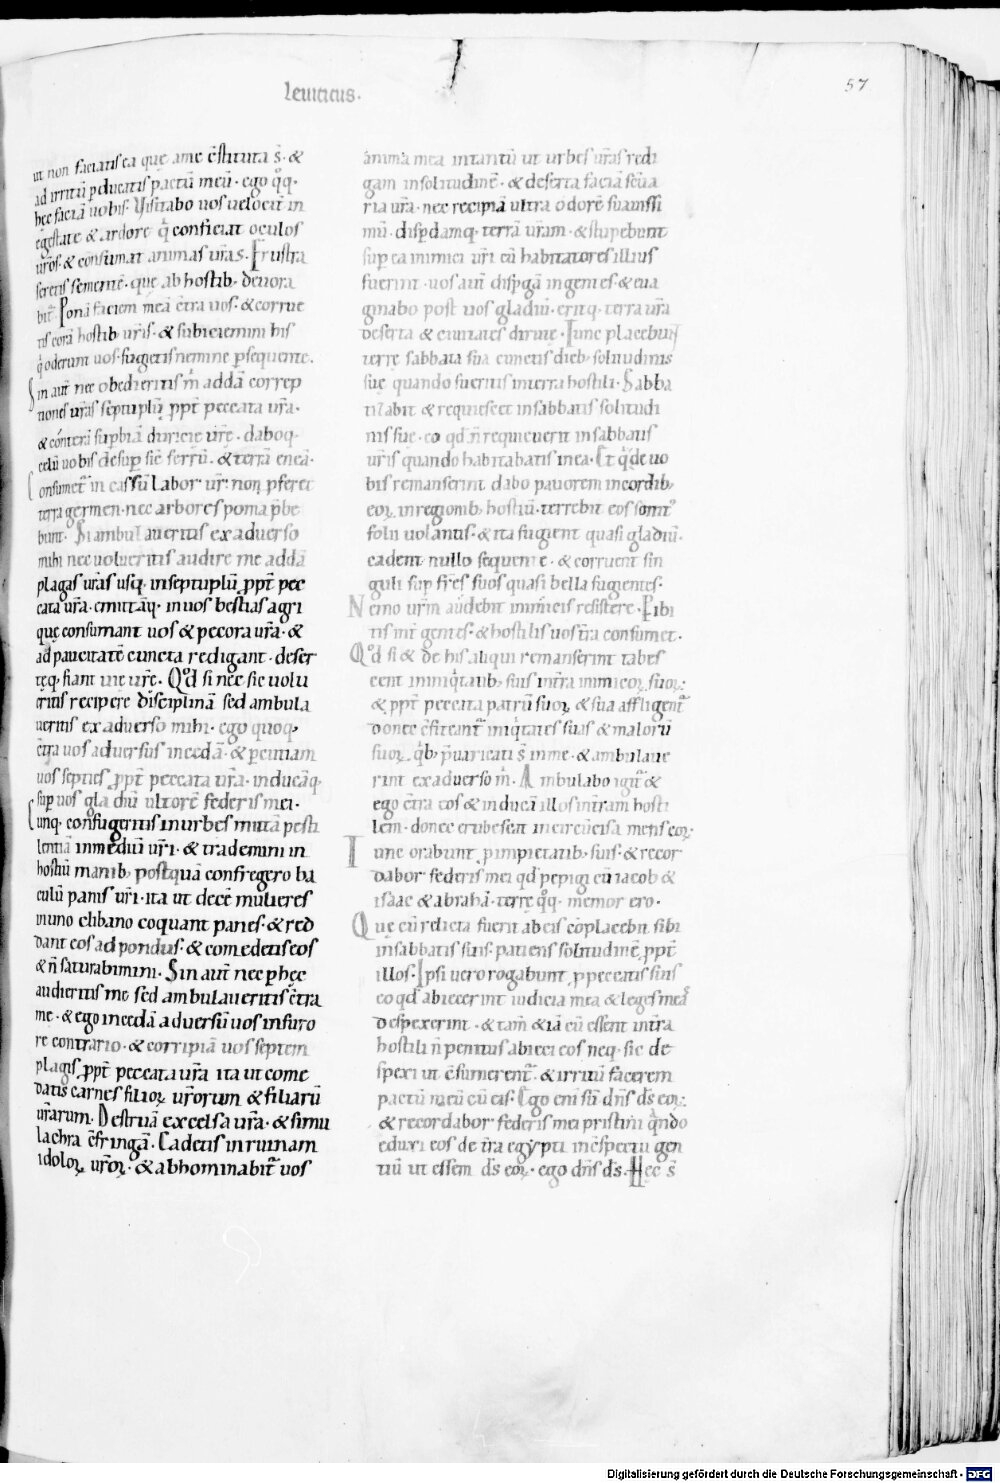 leuiticus.
57
ut non faciatis ea quę ame c̄stituta s̄· &
ad irritū p̱ducatis pactū meū· ego q̊q·
hęc faciā uobis· Visitabo uos uelocit̄ in
egestate & ardore q̇ conficiat oculos
ur̄os· & consumat animas ur̄as. Frustra
seretis sementē· quę ab hostib; deuora
bit̄. Ponā faciem meā c̄tra uos· & corrue
tis corā hostib; ur̄is· & subiciemini his
q̇ oderunt uos· fugietis nemine p̱sequente.
Sin aut̄ nec obedieritis m̄ addā correp
tiones ur̄as septuplū ꝓpt̄ peccata ur̄a·
& cōnterā sup̱biā duricię ur̄ę· daboq;
celū uobis desup̱ sic̄ ferrū· & terrā eneā·
Consumet̄ in cassū labor ur̄· non p̱feret
terra germen· nec arbores poma p̄be
bunt· Si ambulaueritis ex aduerso
mihi nec uolueritis audire me addā
plagas ur̄as usq; inseptuplū ꝓpt̄ pec
cata ur̄a· emittāq; in uos bestias agri
quę consumant uos & pecora ur̄a· &
ad paucitatē cuncta redigant· deser
tęq; fiant uię ur̄ę· Qd̊ si nec sic uolu
eritis recipere disciplinā sed ambula
ueritis ex aduerso mihi· ego quoq;
c̄tra uos aduersus incedā· & p̱cutiam
uos septies ꝓpt̄ peccata ur̄a· inducāq;
sup̱ uos gladiū ultorē federis mei·
Cunq; confugeritis in urbes mittā pesti
lentiā in mediū ur̄i· & trademini in
hostiū manib; postquā confregero ba
culū panis ur̄i· ita ut decē mulieres
in uno clibano coquant panes· & red
dant eos ad pondus· & comedetis eos
& n̄ saturabimini· Sin aut̄ nec p̱ hęc
audieritis me sed ambulaueritis c̄tra
me· & ego incedā aduersū uos in furo
re contrario· & corripiā uos septem
plagis ꝓpt̄ peccata ur̄a ita ut come
datis carnes filioꝝ ur̄orum & filiarū
ur̄arum· Destruā excelsa ur̄a· & simu
lachra c̄fringā· Cadetis in ruinam
idoloꝝ ur̄oꝝ· & abhominabit̄ uos
anima mea intantū ut urbes ur̄as redi
gam insolitudinē· & deserta faciā sc̄ua
ria ur̄a· nec recipiā ultra odorē suauissi
mū· disp̱damq; terrā ur̄am· & stupebunt
sup̱ ea inimici ur̄i cū habitatores illius
fuerint· uos aut̄ disp̱gā in gentes· & eua
ginabo post uos gladiū· eritq; terra ur̄a
deserta & ciuitates dirutę· Tunc placebunt
terrę sabbata sua cunctis dieb; solitudinis
suę quando fueritis in terra hostili· Sabba
tizabit & requiescet in sabbatis solitudi
nis suę· eo qd̄ n̄ requieuerit in sabbatis
ur̄is quando habitabatis in ea· Et q̇ de uo
bis remanserint dabo pauorem in cordib;
eoꝝ in regionib; hostiū· terrebit eos sonit̾
folii uolantis· & ita fugient quasi gladiū·
cadent nullo sequente· & corruent sin
guli sup̱ fr̄es suos quasi bella fugientes·
Nemo ur̄m audebit inimicis resistere· Pibi
tis int̄ gentes· & hostilis uos t̄ra consumet·
Qd̊ si & de his aliqui remanserint tabes
cent in iniq̇tatib; suis int̄ra inimicoꝝ suoꝝ·
& ꝓpt̄ peccata patrū suoꝝ & sua affligent̄
donec c̄fiteant̄ iniq̇tates suas & maloꝝū
suoꝝ q̇b; p̄uaricati s̄ in me· & ambulaue
rint ex aduerso m̄· Ambulabo igit̄ &
ego c̄tra eos & inducā illos int̄ram hosti
lem· donec erubescat incircūcisa mens eoꝝ·
Tunc orabunt ꝓ impietatib; suis· & recor
dabor federis mei qd̄ pepigi cū iacob &
isaac & abrahā· terrę q̊q; memor ero·
Quę cū relicta fuerit ab eis cōplacebit sibi
in sabbatis suis· patiens solitudinē ꝓpt̄
illos· Ipsi uero rogabunt ꝓ peccatis suis
eo qd̄ abiecerint iudicia mea & leges meas
despexerint· & tam̄ & iā cū essent int̄ra
hostili n̄ penitus abieci eos neq; sic de
spexi ut c̄sumerent̄· & irritū facerem
pactū meū cū eis· Ego eni sū dn̄s ds̄ eoꝝ·
& recordabor federis mei pristini q̇ndo
eduxi eos de t̄ra egypti in c̄spectu gen
tiū ut essem ds̄ eoꝝ· ego dn̄s ds̄· Hęc s̄
Digitalisierung gefördert durch die Deutsche Forschungsgemeinschaft - DFG